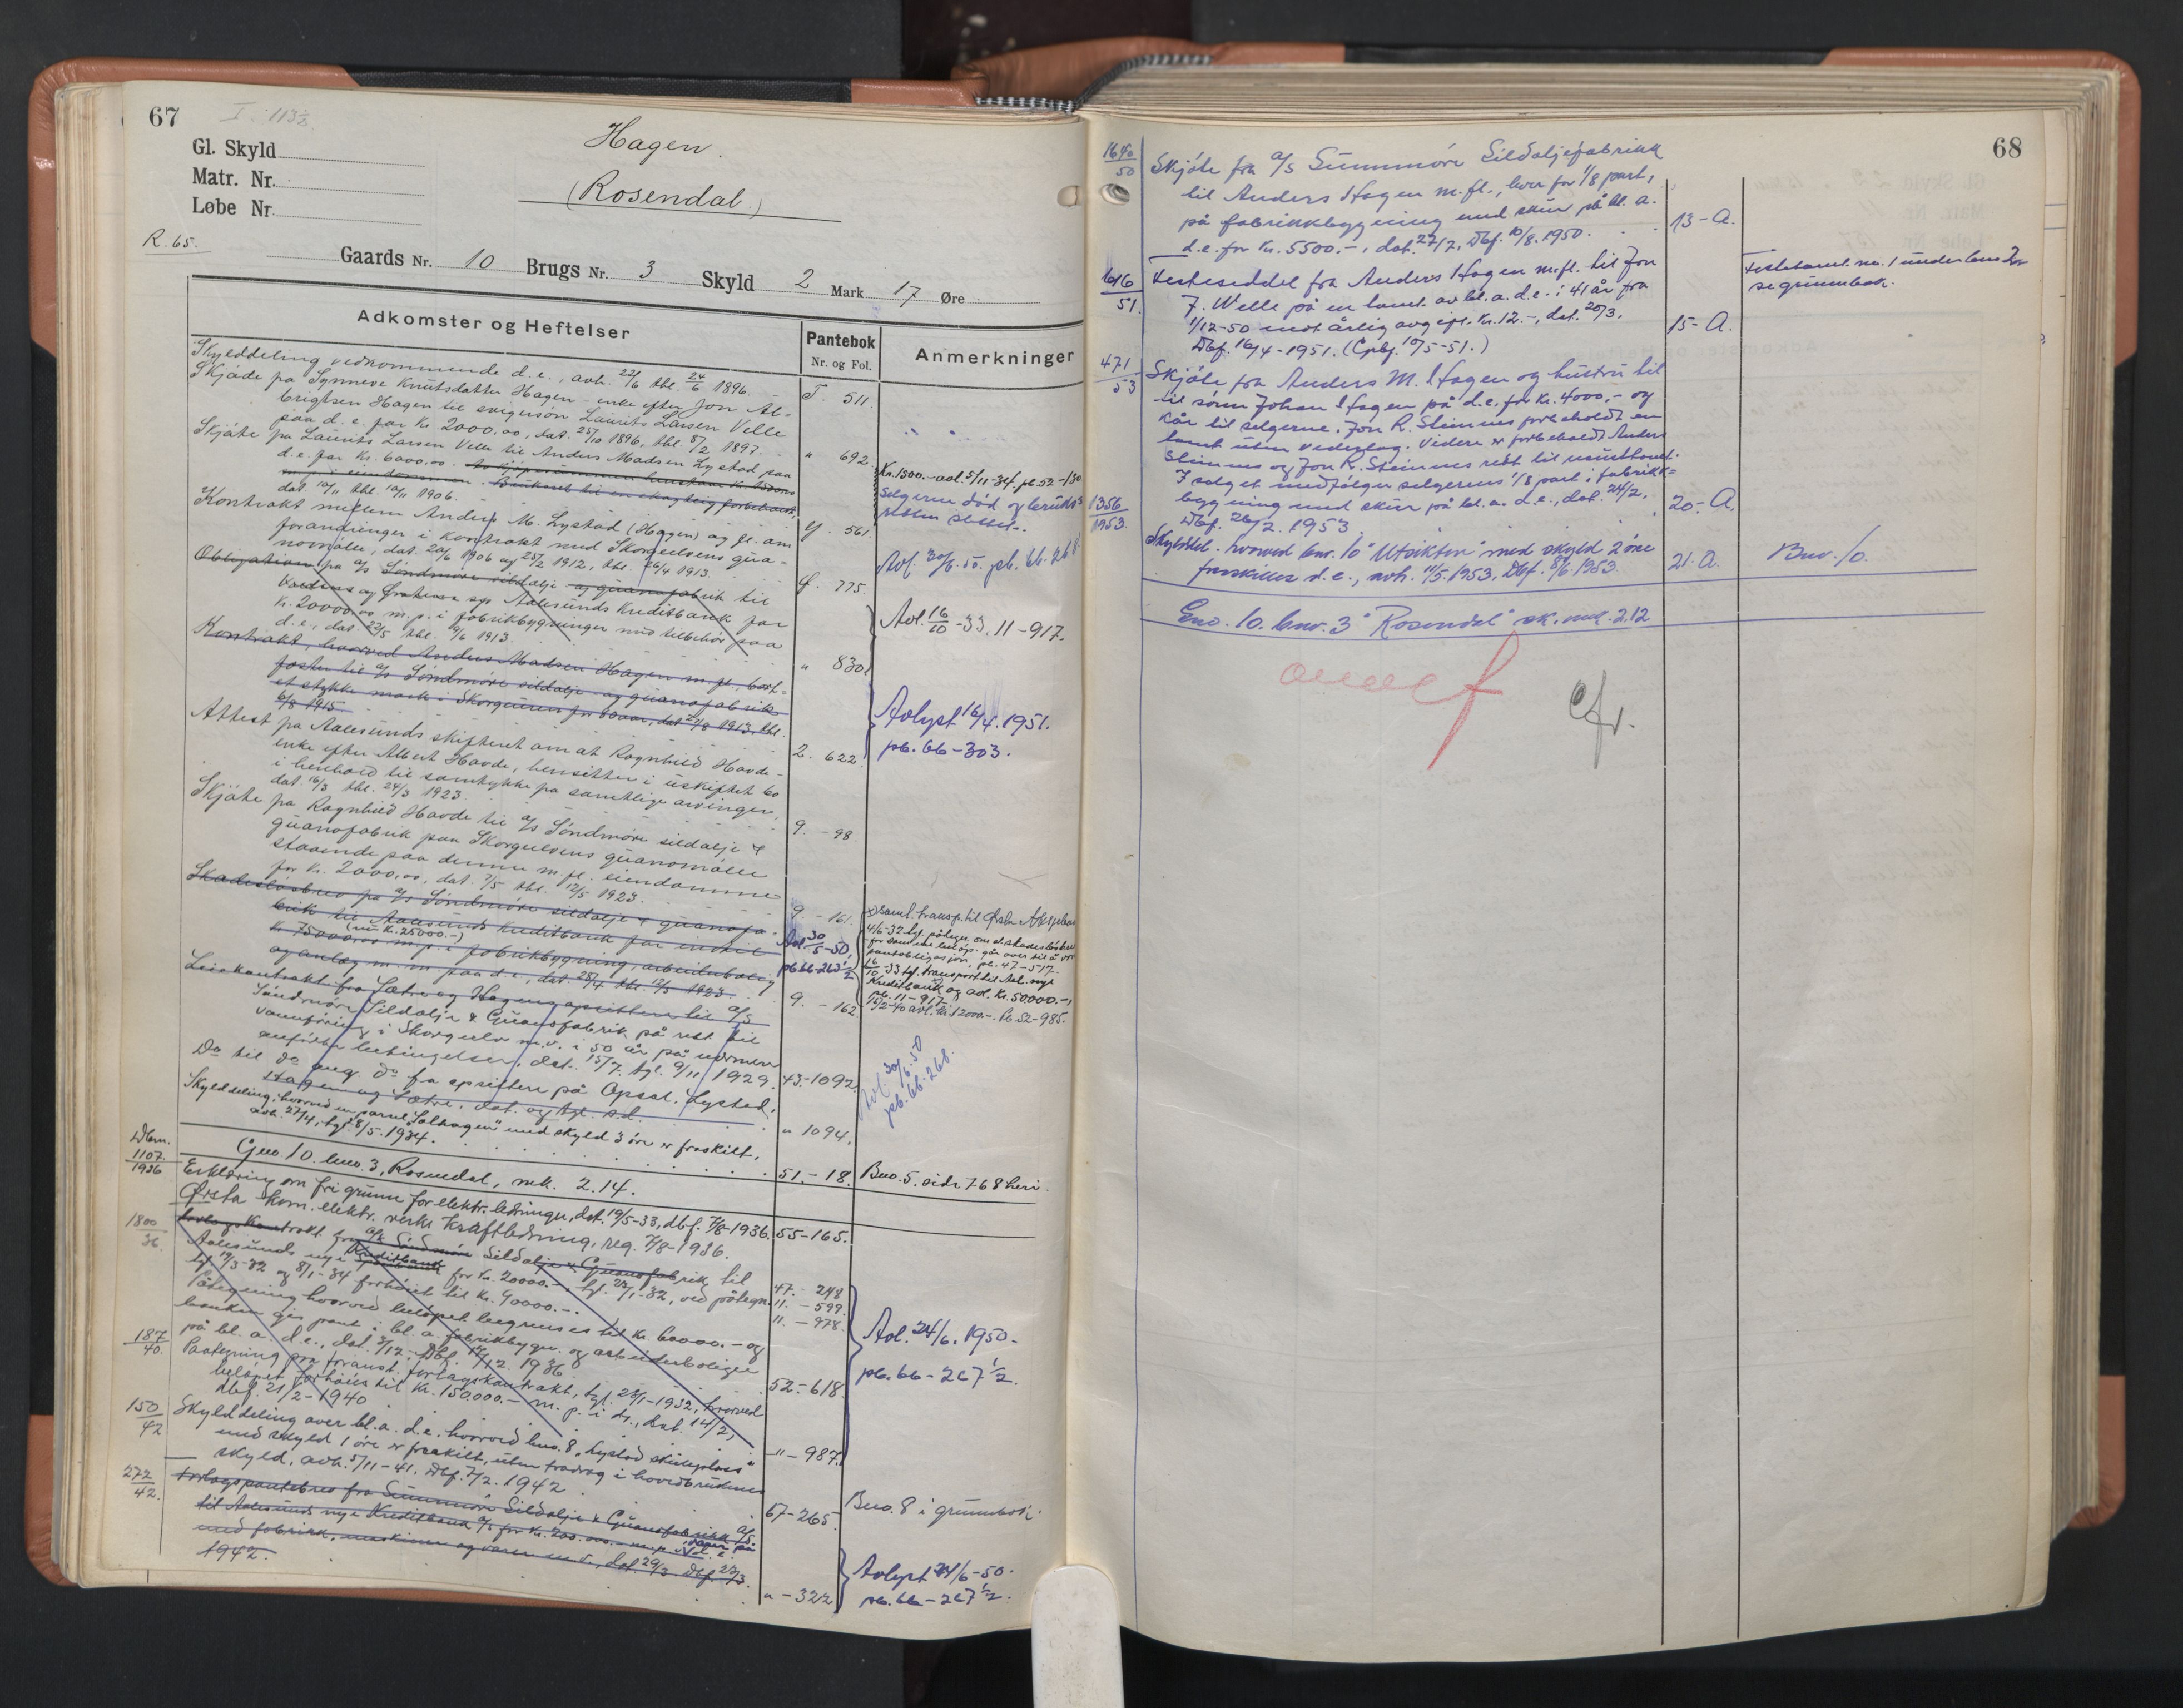 67
I. 113½
Hagen.
(Rosendal.)
Gl. Skyld
Matr. Nr.
Løbe Nr.
R. 65.
Gaards Nr. 10 Brugs Nr. 3 Skyld 2 Mark 17 Øre
Adkomster og Heftelser
Pantebok
Nr. og Fol.
Anmerkninger
Skylddeling vedkommende d. e., avh. 22/6 thl. 24/6 1896. T. 511.
Skjøde fra Synneve Knutsdatter Hagen - enke efter Jon Al-
brigtsen Hagen til svigersøn Laurits Larsen Velle
paa d. e. for Kr. 2000,00, dat. 25/10 1896, thl. 8/2 1897. " 692.
Skjøte fra Laurits Larsen Velle til Anders Madsen Lystad paa
d. e. for Kr. 6000,00. Av kjøpesummen henstaar Kr. 1500,00
m. p. i eiendommen. Bruksret til en skogteig forbeholdt,
dat. 10/11 thl. 10/11 1906. Y. 561.
Kr. 1500.- avl. 5/11-34. pb. 52-130
Selgeren død og bruks-
retten slettet.
Kontrakt mellem Anders M. Lystad (Hagen) og fl. om
forandringer i Kontrakt med Skorgeelvens gua-
nomølle, dat. 20/6 1906 og 25/2 1912, thl. 26/4 1913. Y. 775.
Avl. 30/6. 50. pb. 66. 268.
Obligation fra a/s Søndmøre sildolje og guanofabrik til
Aalesunds Kreditbank for
Kr. 20000,00 m. p. i fabrikbygninger med tilbehør paa
d. e., dat. 22/5 thl. 9/6 1913. " 830.
Avl. 16/10 -33. 11-917.
Kontrakt, hvorved Anders Madsen Hagen m. fl. bort-
fæster til a/s Søndmøre sildolje og guanofabrik
et stykke mark i Skorgeuren for 80 aar, dat. 2/8 1913, thl.
6/8 1915. 2. 622.
Avlyst 16/4. 1951.
pb. 66-303.
Attest fra Aalesunds skifteret om at Ragnhild Havde
enke efter Albert Havde, hensitter i uskiftet bo
i henhold til samtykke fra samtlige arvinger,
dat. 16/3 thl. 24/3 1923. 9. - 98.
Skjøte fra Ragnhild Havde til a/s Søndmøre sildolje &
guanofabrik paa Skorgeelvens guanomølle
staaende paa denne m. fl. eiendomme
for Kr. 2000,00, dat. 7/5 thl. 12/5 1923. 9. - 161.
Skadesløsbrev fra a/s Søndmøre sildolje & guanofa-
brik til Aalesunds Kreditbank for indtil
(nu Kr. 25000.-)
Kr. 75000,00 m. p. i fabrikbygning, arbeiderbolig
og anlæg m. m. paa d. e., dat. 28/4 thl. 12/5 1923. 9. - 162.
Avl. 30/5-50,
pb 66-263½
x) Saml. transp. til Ørsta Aksjebank
4/6-32 tgl. påtegn. om at skadesløsbrev
for samme beløp går over til å være
pantobligasjon, pb. 47-517.
16/10-33 tgl. transport til Aal. nye
Kreditbank og avl. Kr. 50.000.-,
pb. 11-917.
15/2-40 avl. Kr. 12000.-. Pb. 52-985.
Leiekontrakt fra Sætre og Hagens opsittere til a/s
Søndmøre Sildolje & Guanofabrik på rett til
vannføring i Skorgeelv m. v. i 50 år på nærmere
anførte betingelser, dat. 15/7. tgl. 9/11 1929. 43-1092.
Avl. 30/6. 50
pb. 66-268.
Do til do ang. do fra opsittere på Opsal, Lystad,
Hagen og Sætre, dat. og tgl. s. d. " 1094.
Skylddeling, hvorved en parsel "Solhagen" med skyld 3 øre er fraskilt,
avh. 27/4, tgl. 8/5. 1934. 51.-18.
Bno. 5. side 768 heri.
Gno. 10. bno. 3, Rosendal, mk. 2.14.
Dbnr.
1107
1936
Erklæring om fri grunn for elektr. ledninger, dat. 19/5-33, dbf. 7/8-1936. 55-165.
Ørsta kom. elektr. verks Kraftledning, reg. 7/8-1936.
1800
36
Forlagskontrakt fra a/s Søndmøre Sildolje & Guanofabrik til
Aalesunds nye Kreditbank for Kr. 20000.-, tgl. 23/1-32, ved påtegn. 47.- 248
tgl. 19/3-32 og 8/1-34 forhøiet til Kr. 90000.-. 11.-599.
Påtegning hvorved beløpet begrenses til Kr. 60000.- og 11.-978.
banken gis pant i bl. a. fabrikbygn. og arbeiderboliger
på bl. a. d. e., dat. 3/12. Dbf. 14/12. 1936. 52.-618.
Avl. 24/6. 1950.
pb. 66-267½.
187
40.
Påtegning på foranst. forlagskontrakt, tgl. 23/1-1932, hvorved
beløpet forhøies til Kr. 150.000.- m. p. i d. e., dat. 14/2,
Dbf. 21/2-1940 " - 987.
150
42
Skylddeling over bl. a. d. e. hvorved bno. 8 "Lystad skuleplass"
med skyld 1 øre er fraskilt, uten fradrag i hovedbrukets
skyld, avh. 5/11-41. Dbf. 7/2. 1942. 67-265
Bno. 8 i grunnbok.
272
42.
Forlagspantebrev fra Sunnmøre Sildolje & Guanofabrikk a/s.
til Aalesunds nye Kreditbank a/s for Kr. 200.000.- m. p. i
med fabrikk, maskiner og varer m. v., dat. 20/3. Dbf. 27/3.
1942. " -322
Avlyst 24/6-50.
pb. 66-267½.
68
1640
50
Skjøte fra a/s Sunnmøre Sildoljefabrikk
til Anders Hagen m. fl., hver for 1/8 part,
på fabrikkbygning med skur på bl. a.
d. e. for Kr. 5500.-, dat. 27/7, Dbf. 10/8. 1950. 13-A.
616
51.
Festeseddel fra Anders Hagen m. fl. til Jon
J. Welle på en tomt av bl. a. d. e. i 41 år fra
1/12-50 mot årlig avgift Kr. 12.-, dat. 20/3.
Dbf. 16/4-1951. (Gpbj. 10/5-51.) 15-A.
Festetomt nr. 1 under bnr. 3
se grunnbok.
471
53
Skjøte fra Anders M. Hagen og hustru til
til sønn Johan Hagen på d. e. for Kr. 4000,- og
kår til selgerne. Jon R. Steinnes forbeholdt en
tomt uten vederlag. Videre er forbeholdt Anders
Steinnes og Jon R. Steinnes rett til
I salget medfølger selgerens 1/8 part i fabrikk-
bygning med skur på bl. a. d. e., dat. 24/2,
Dbf. 26/2. 1953. 20-A.
1356
1953.
Skylddel. hvorved bnr. 10 "Utsikten" med skyld 2 øre
fraskilles d. e., avh. 11/5. 1953, Dbf. 8/6. 1953. 21-A.
Bnr. 10.
Gno. 10. bnr. 3 "Rosendal" sk. mk. 2.12